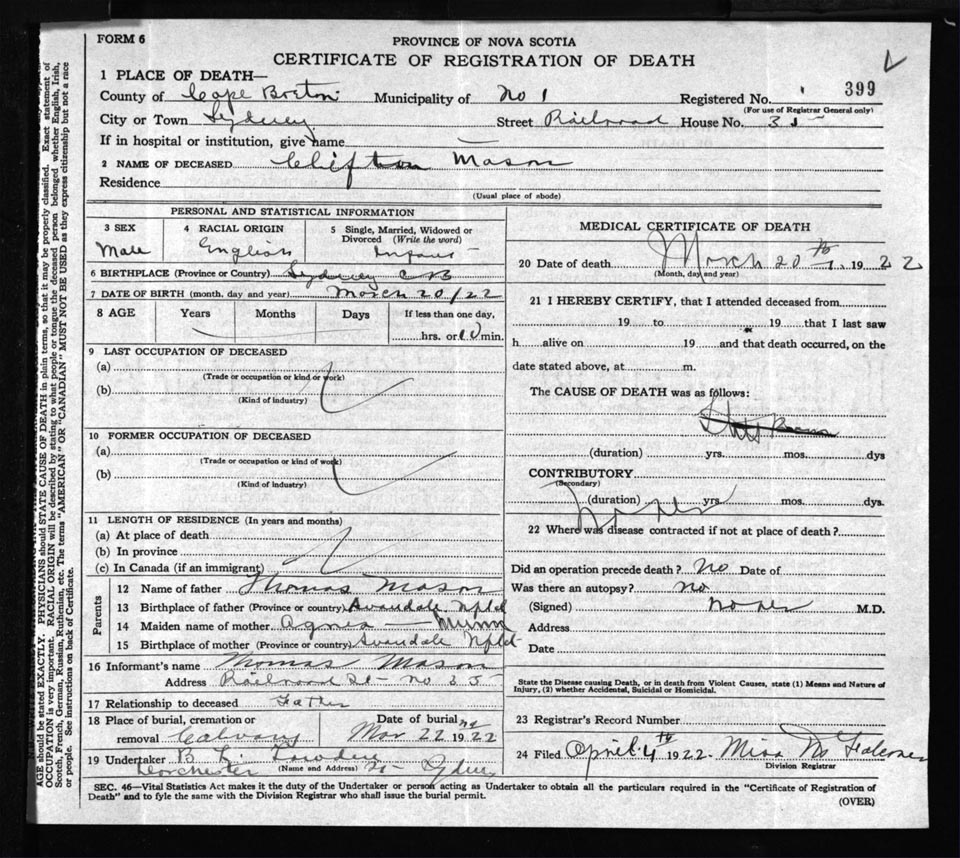 FORM 6
PROVINCE OF NOVA SCOTIA
CERTIFICATE OF REGISTRATION OF DEATH
1 PLACE OF DEATH—
County of Cape Breton Municipality of No 1 Registered No. 399
(For use of Registrar General only)
City or Town Sydney Street Railroad House No. 35
If in hospital or institution, give name —
2 NAME OF DECEASED Clifton Mason
Residence
(Usual place of abode)
PERSONAL AND STATISTICAL INFORMATION
3 SEX Male
4 RACIAL ORIGIN English
5 Single, Married, Widowed or Divorced (Write the word) Infant
6 BIRTHPLACE (Province or Country) Sydney CB
7 DATE OF BIRTH (month, day and year) March 20/22
8 AGE Years Months Days If less than one day,
hrs. or 10 min.
9 LAST OCCUPATION OF DECEASED
(a)
(Trade or occupation or kind of work)
(b)
(Kind of industry)
10 FORMER OCCUPATION OF DECEASED
(a)
(Trade or occupation or kind of work)
(b)
(Kind of industry)
11 LENGTH OF RESIDENCE (In years and months)
(a) At place of death
(b) In province
(c) In Canada (if an immigrant)
Parents
12 Name of father Thomas Mason
13 Birthplace of father (Province or country) Avondale Nfld
14 Maiden name of mother Agnes — Munn
15 Birthplace of mother (Province or country) Avondale Nfld
16 Informant's name Thomas Mason
Address Railroad St - No 35
17 Relationship to deceased Father
18 Place of burial, cremation or removal Calvary
Date of burial Mar 22nd 1922
19 Undertaker B
(Name and Address)
Dorchester St Sydney
MEDICAL CERTIFICATE OF DEATH
20 Date of death March 20th, 1922
(Month, day and year)
21 I HEREBY CERTIFY, that I attended deceased from
19 to 19 that I last saw
h alive on 19 and that death occurred, on the
date stated above, at m.
The CAUSE OF DEATH was as follows:
(duration) yrs. mos. dys
CONTRIBUTORY
(Secondary)
(duration) yrs. mos. dys.
22 Where was disease contracted if not at place of death?
Did an operation precede death? No Date of
Was there an autopsy? No
(Signed) M.D.
Address
Date
State the Disease causing Death, or in death from Violent Causes, state (1) Means and Nature of
Injury, (2) whether Accidental, Suicidal or Homicidal.
23 Registrar's Record Number
24 Filed April 4th 1922 Miss
Division Registrar
SEC. 46—Vital Statistics Act makes it the duty of the Undertaker or person acting as Undertaker to obtain all the particulars required in the "Certificate of Registration of
Death" and to fyle the same with the Division Registrar who shall issue the burial permit.
(OVER)
AGE should be stated EXACTLY. PHYSICIANS should STATE CAUSE OF DEATH in plain terms, so that it may be properly classified. Exact statement of
OCCUPATION is very important. RACIAL ORIGIN will be described by stating to what people or tongue the deceased person belonged whether English, Irish,
Scotch, French, German, Russian, Ruthenian, etc. The terms "AMERICAN" OR "CANADIAN" MUST NOT BE USED as they express citizenship but not a race
or people. See instructions on back of Certificate.